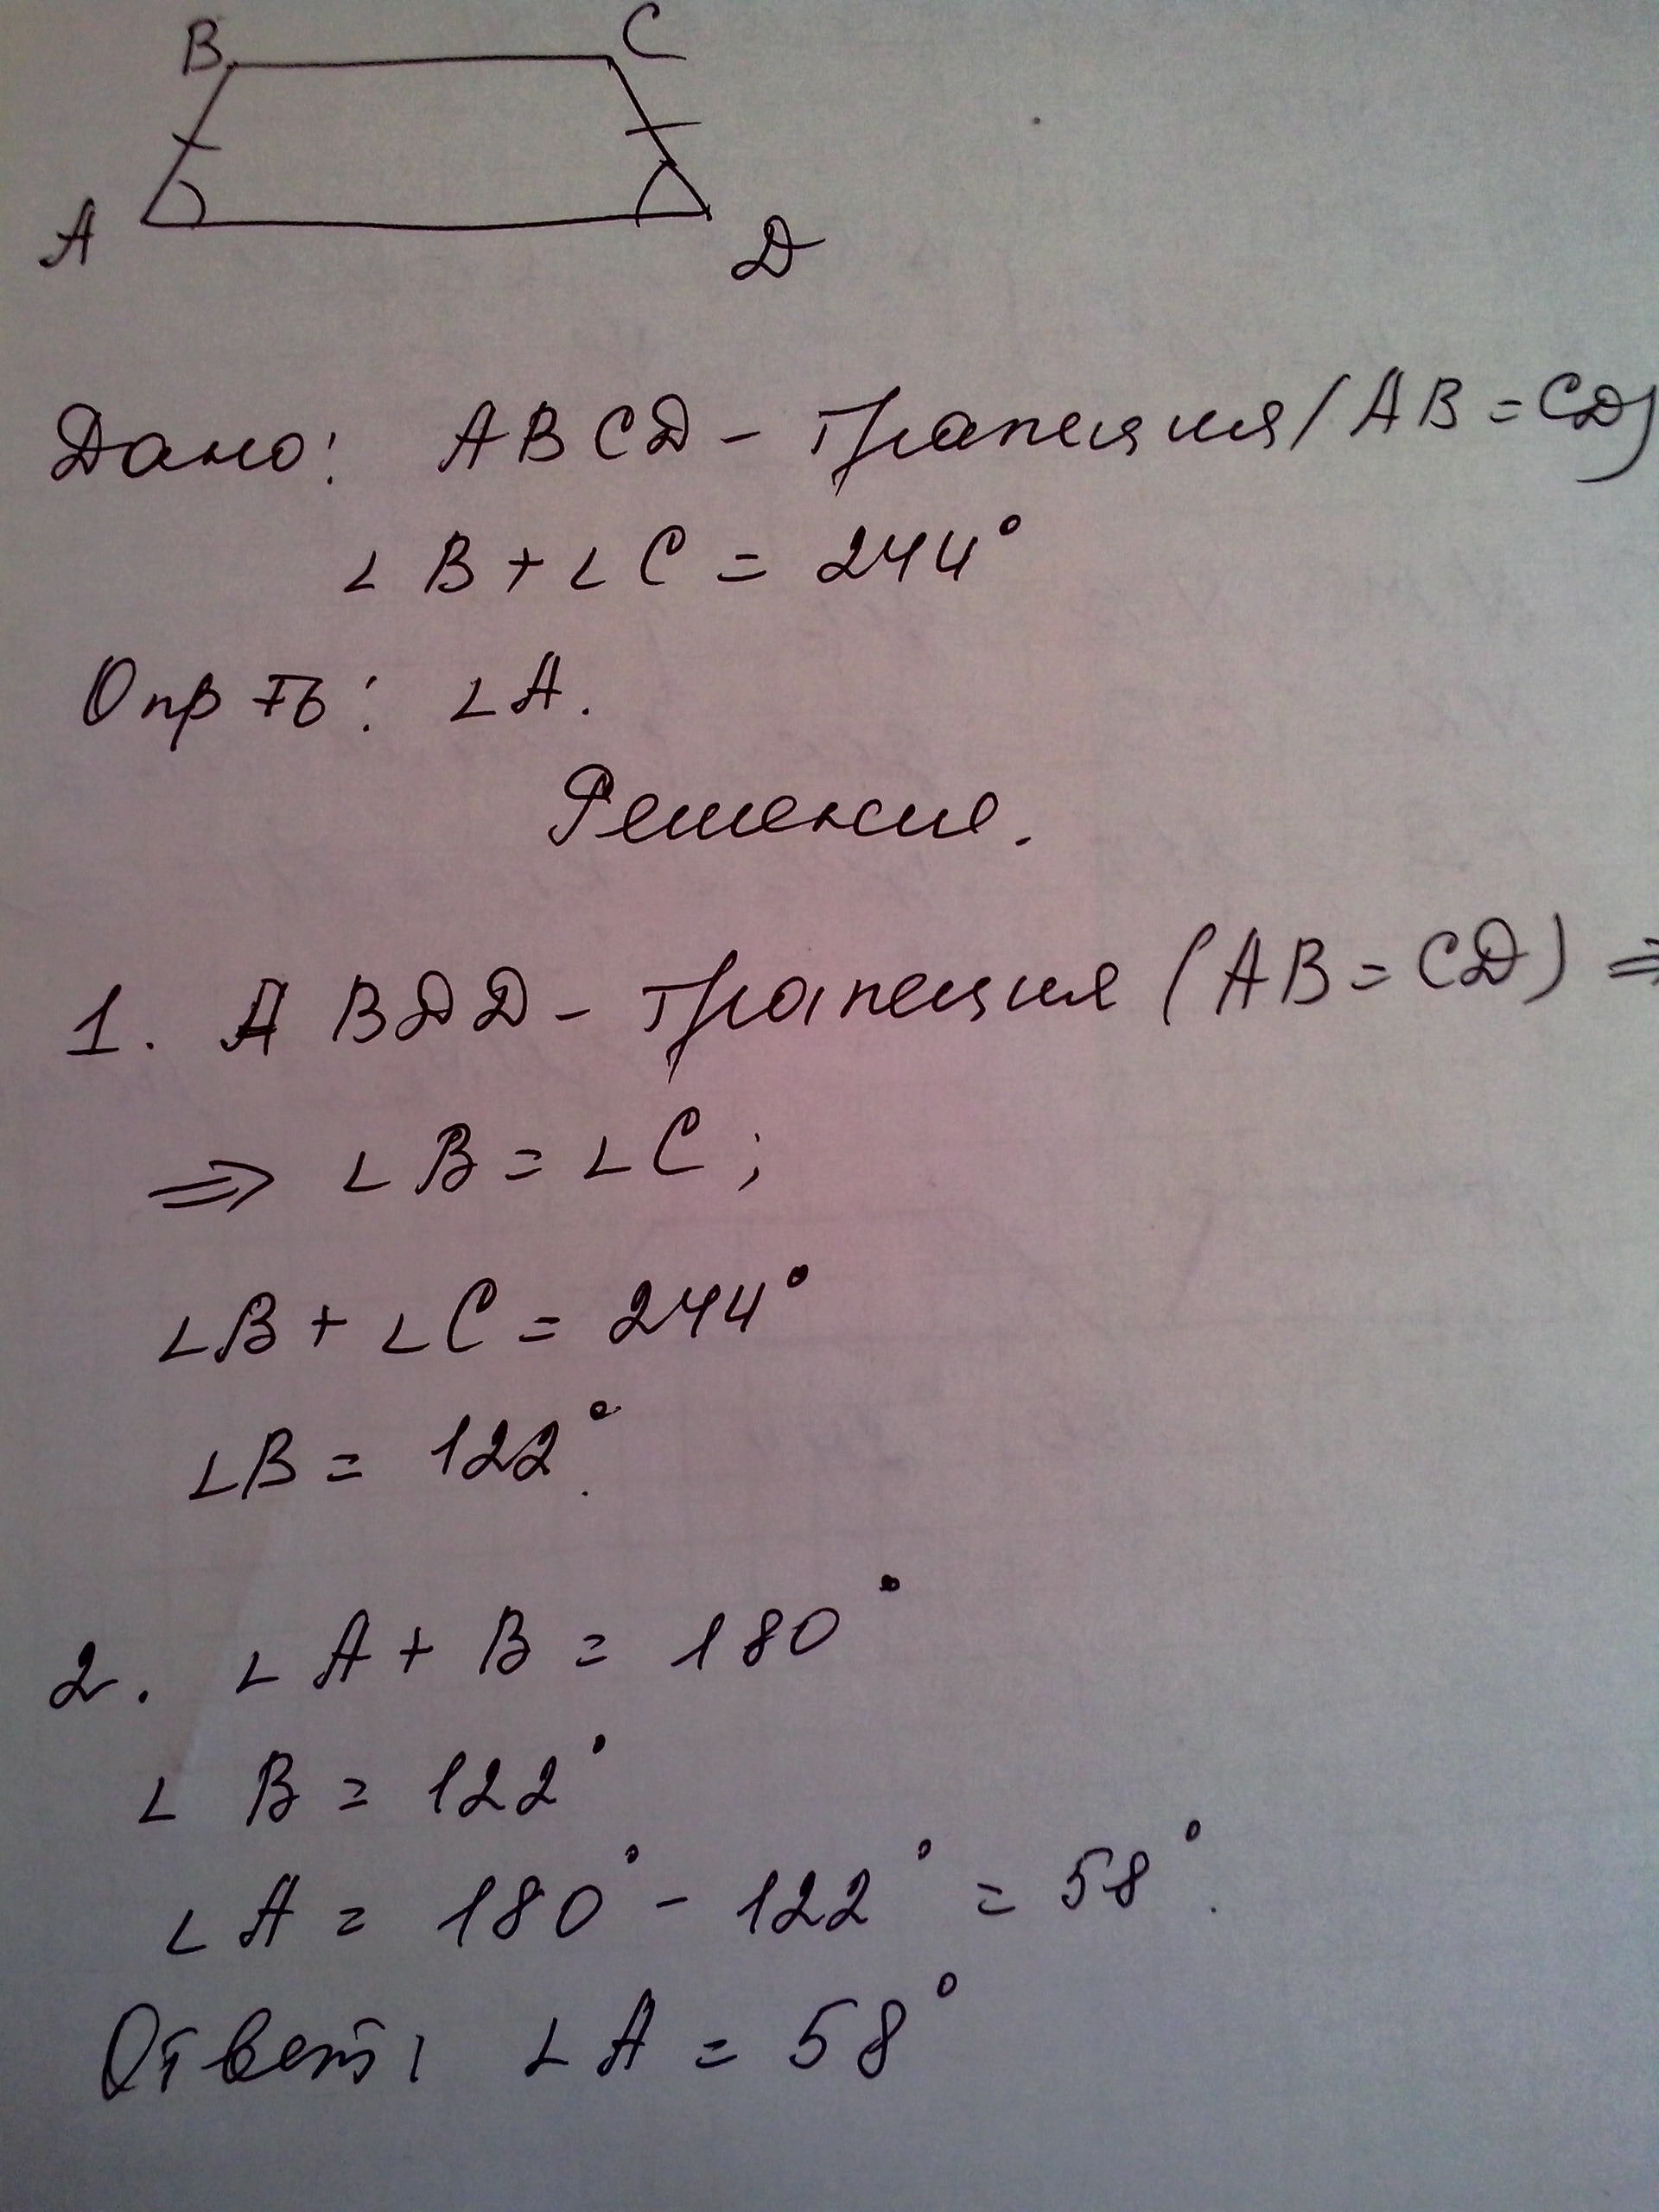 B C
A D
Дано: ABCD - трапеция (AB = CD)
∠B + ∠C = 244°
Опр-ть: ∠A.
Решение.
1. ABDD - трапеция (AB = CD) ⇒
⇒ ∠B = ∠C;
∠B + ∠C = 244°
∠B = 122°.
2. ∠A + B = 180°
∠B = 122°
∠A = 180° - 122° = 58°.
Ответ: ∠A = 58°